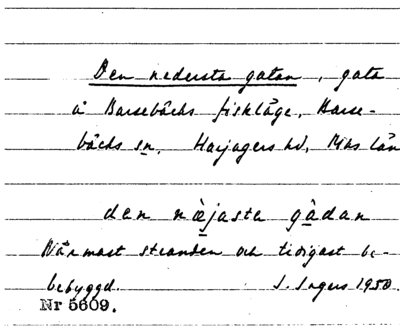 Den nedersta gatan, gata
å Barsebäcks fiskläge, Barse-
bäcks sn. Harjagers hd, Mhs län
den næjasta gådan
Närmast stranden och tidigast be-
bebyggd. I. Ingers 1950
Nr 5609.